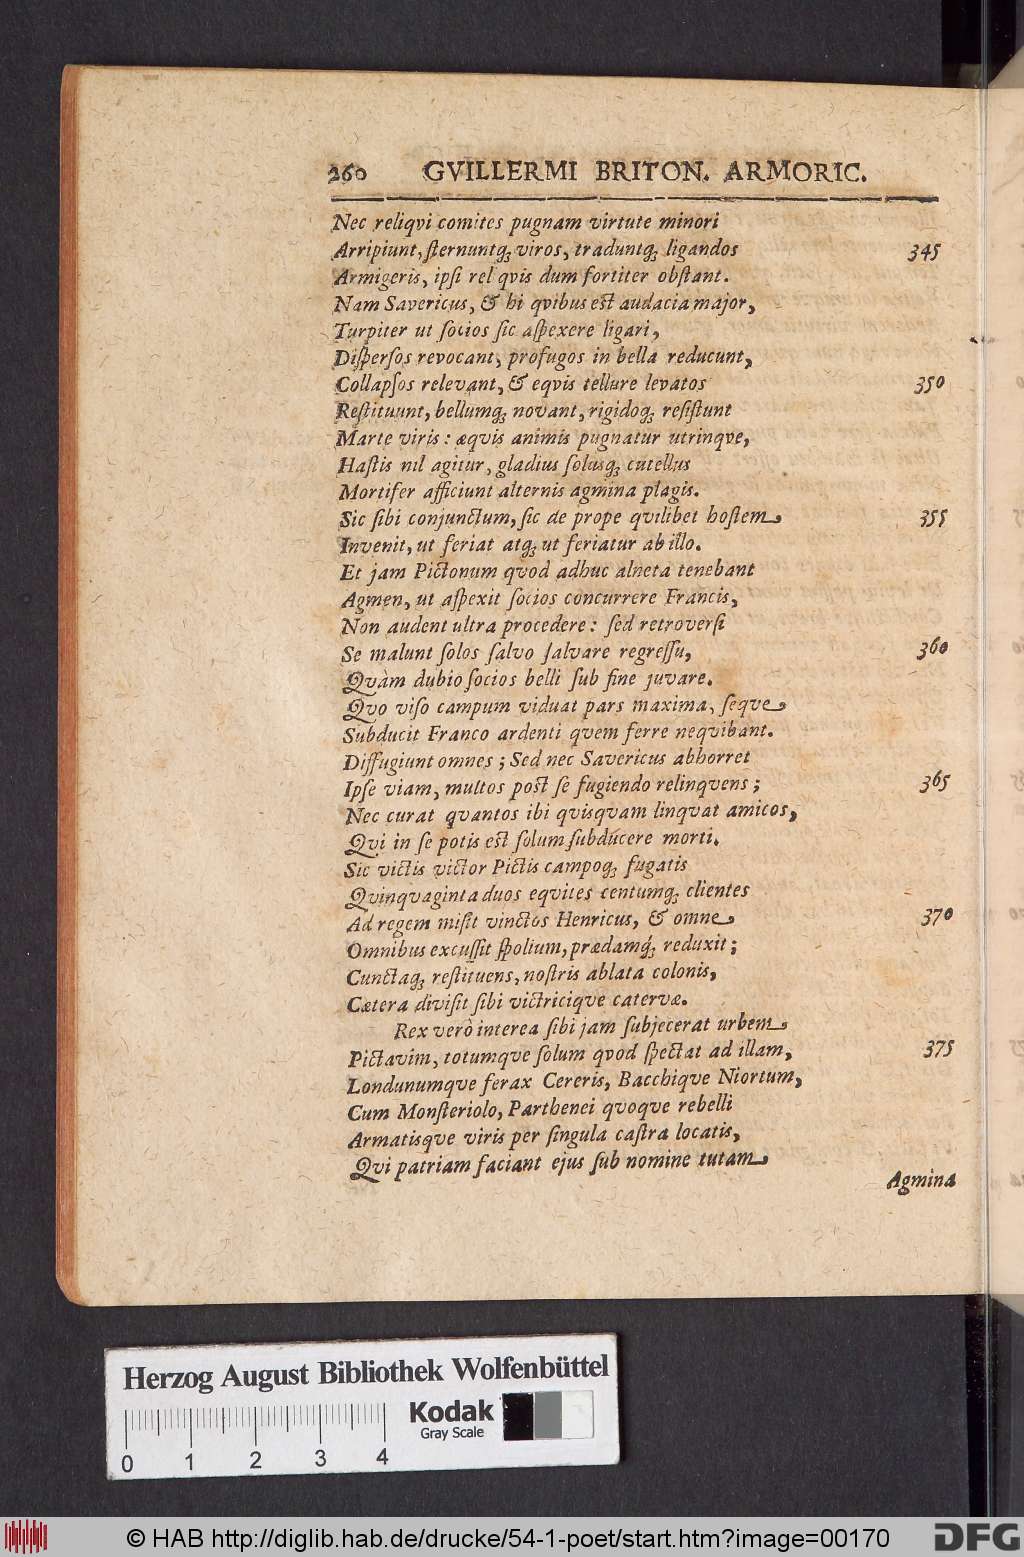 260 GVILLERMI BRITON. ARMORIC.
Nec reliqvi comites pugnam virtute minori
Arripiunt, ſternuntq; viros, traduntq; ligandos 345
Armigeris, ipſi rel qvis dum fortiter obſtant.
Nam Savericus, & hi qvibus est audacia major,
Turpiter ut ſocios ſic aſpexere ligari,
Diſperſos revocant, profugos in bella reducunt,
Collapſos relevant, & eqvis tellure levatos 350
Reſtituunt, bellumq; novant, rigidoq; reſiſtunt
Marte viris: æqvis animis pugnatur utrinqve,
Haſtis nil agitur, gladius ſolusq; cutellus
Mortifer afficiunt alternis agmina plagis.
Sic ſibi conjunctum, ſic de prope qvilibet hoſtem 355
Invenit, ut feriat atq; ut feriatur ab illo.
Et jam Pictonum qvod adhuc alneta tenebant
Agmen, ut aſpexit ſocios concurrere Francis,
Non audent ultra procedere: ſed retroverſi
Se malunt ſolos ſalvo ſalvare regreſſu, 360
Qvàm dubio ſocios belli ſub fine juvare.
Qvo viſo campum viduat pars maxima, ſeqve
Subducit Franco ardenti qvem ferre neqvibant.
Diffugiunt omnes; Sed nec Savericus abhorret
Ipſe viam, multos post ſe fugiendo relinqvens; 365
Nec curat qvantos ibi qvisqvam linqvat amicos,
Qvi in ſe potis est ſolum ſubducere morti.
Sic victis victor Pictis campoq; fugatis
Qvinqvaginta duos eqvites centumq; clientes
Ad regem miſit vinctos Henricus, & omne 370
Omnibus excuſſit ſpolium, prædamq́; reduxit;
Cunctaq; reſtituens, noſtris ablata colonis,
Cætera diviſit ſibi victriciqve catervæ.
Rex verò interea ſibi jam ſubjecerat urbem
Pictavim, totumqve ſolum qvod ſpectat ad illam, 375
Londunumqve ferax Cereris, Bacchiqve Niortum,
Cum Monſteriolo, Parthenei qvoqve rebelli
Armatisqve viris per ſingula caſtra locatis,
Qvi patriam faciant ejus ſub nomine tutam
Agmina
Herzog August Bibliothek Wolfenbüttel
Kodak
Gray Scale
0 1 2 3 4
© HAB http://diglib.hab.de/drucke/54-1-poet/start.htm?image=00170
DFG